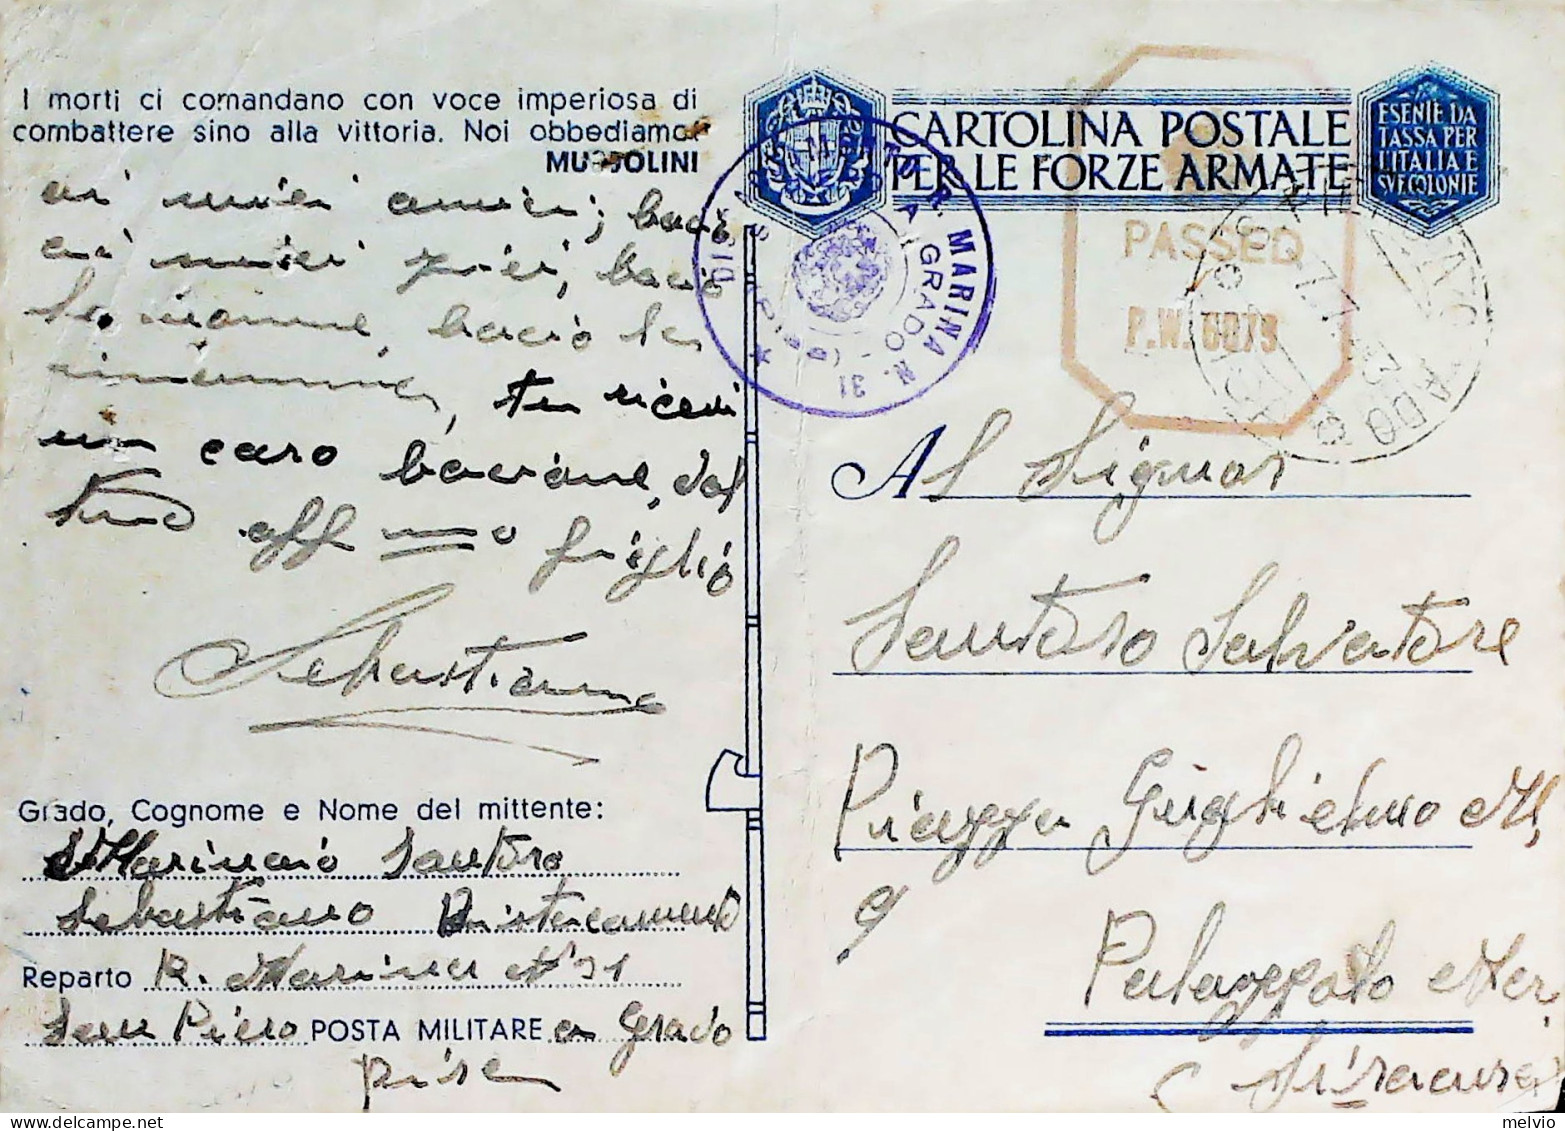 I morti ci comandano con voce imperiosa di
combattere sino alla vittoria. Noi obbediamo!
MUSSOLINI
ai miei amici; bacio
ai miei ziei, bacio
la mamma, bacio la
tu ricevi
un caro bacione, dal
tuo aff mo figlio
Sebastiano
Grado, Cognome e Nome del mittente:
Marinaio Santoro
Sebastiano Distacamento
Reparto R. Marina N° 31
San Piero POSTA MILITARE a Grado
Pisa
CARTOLINA POSTALE
PER LE FORZE ARMATE
ESENTE DA
TASSA PER
L'ITALIA E
SUE COLONIE
R. MARINA
A GRADO N. 31
PASSED
P.W. 6073
Al Signor
Santoro Salvatore
Piazza Guglielmo M,
9
Palazzolo
Siracusa
melvio